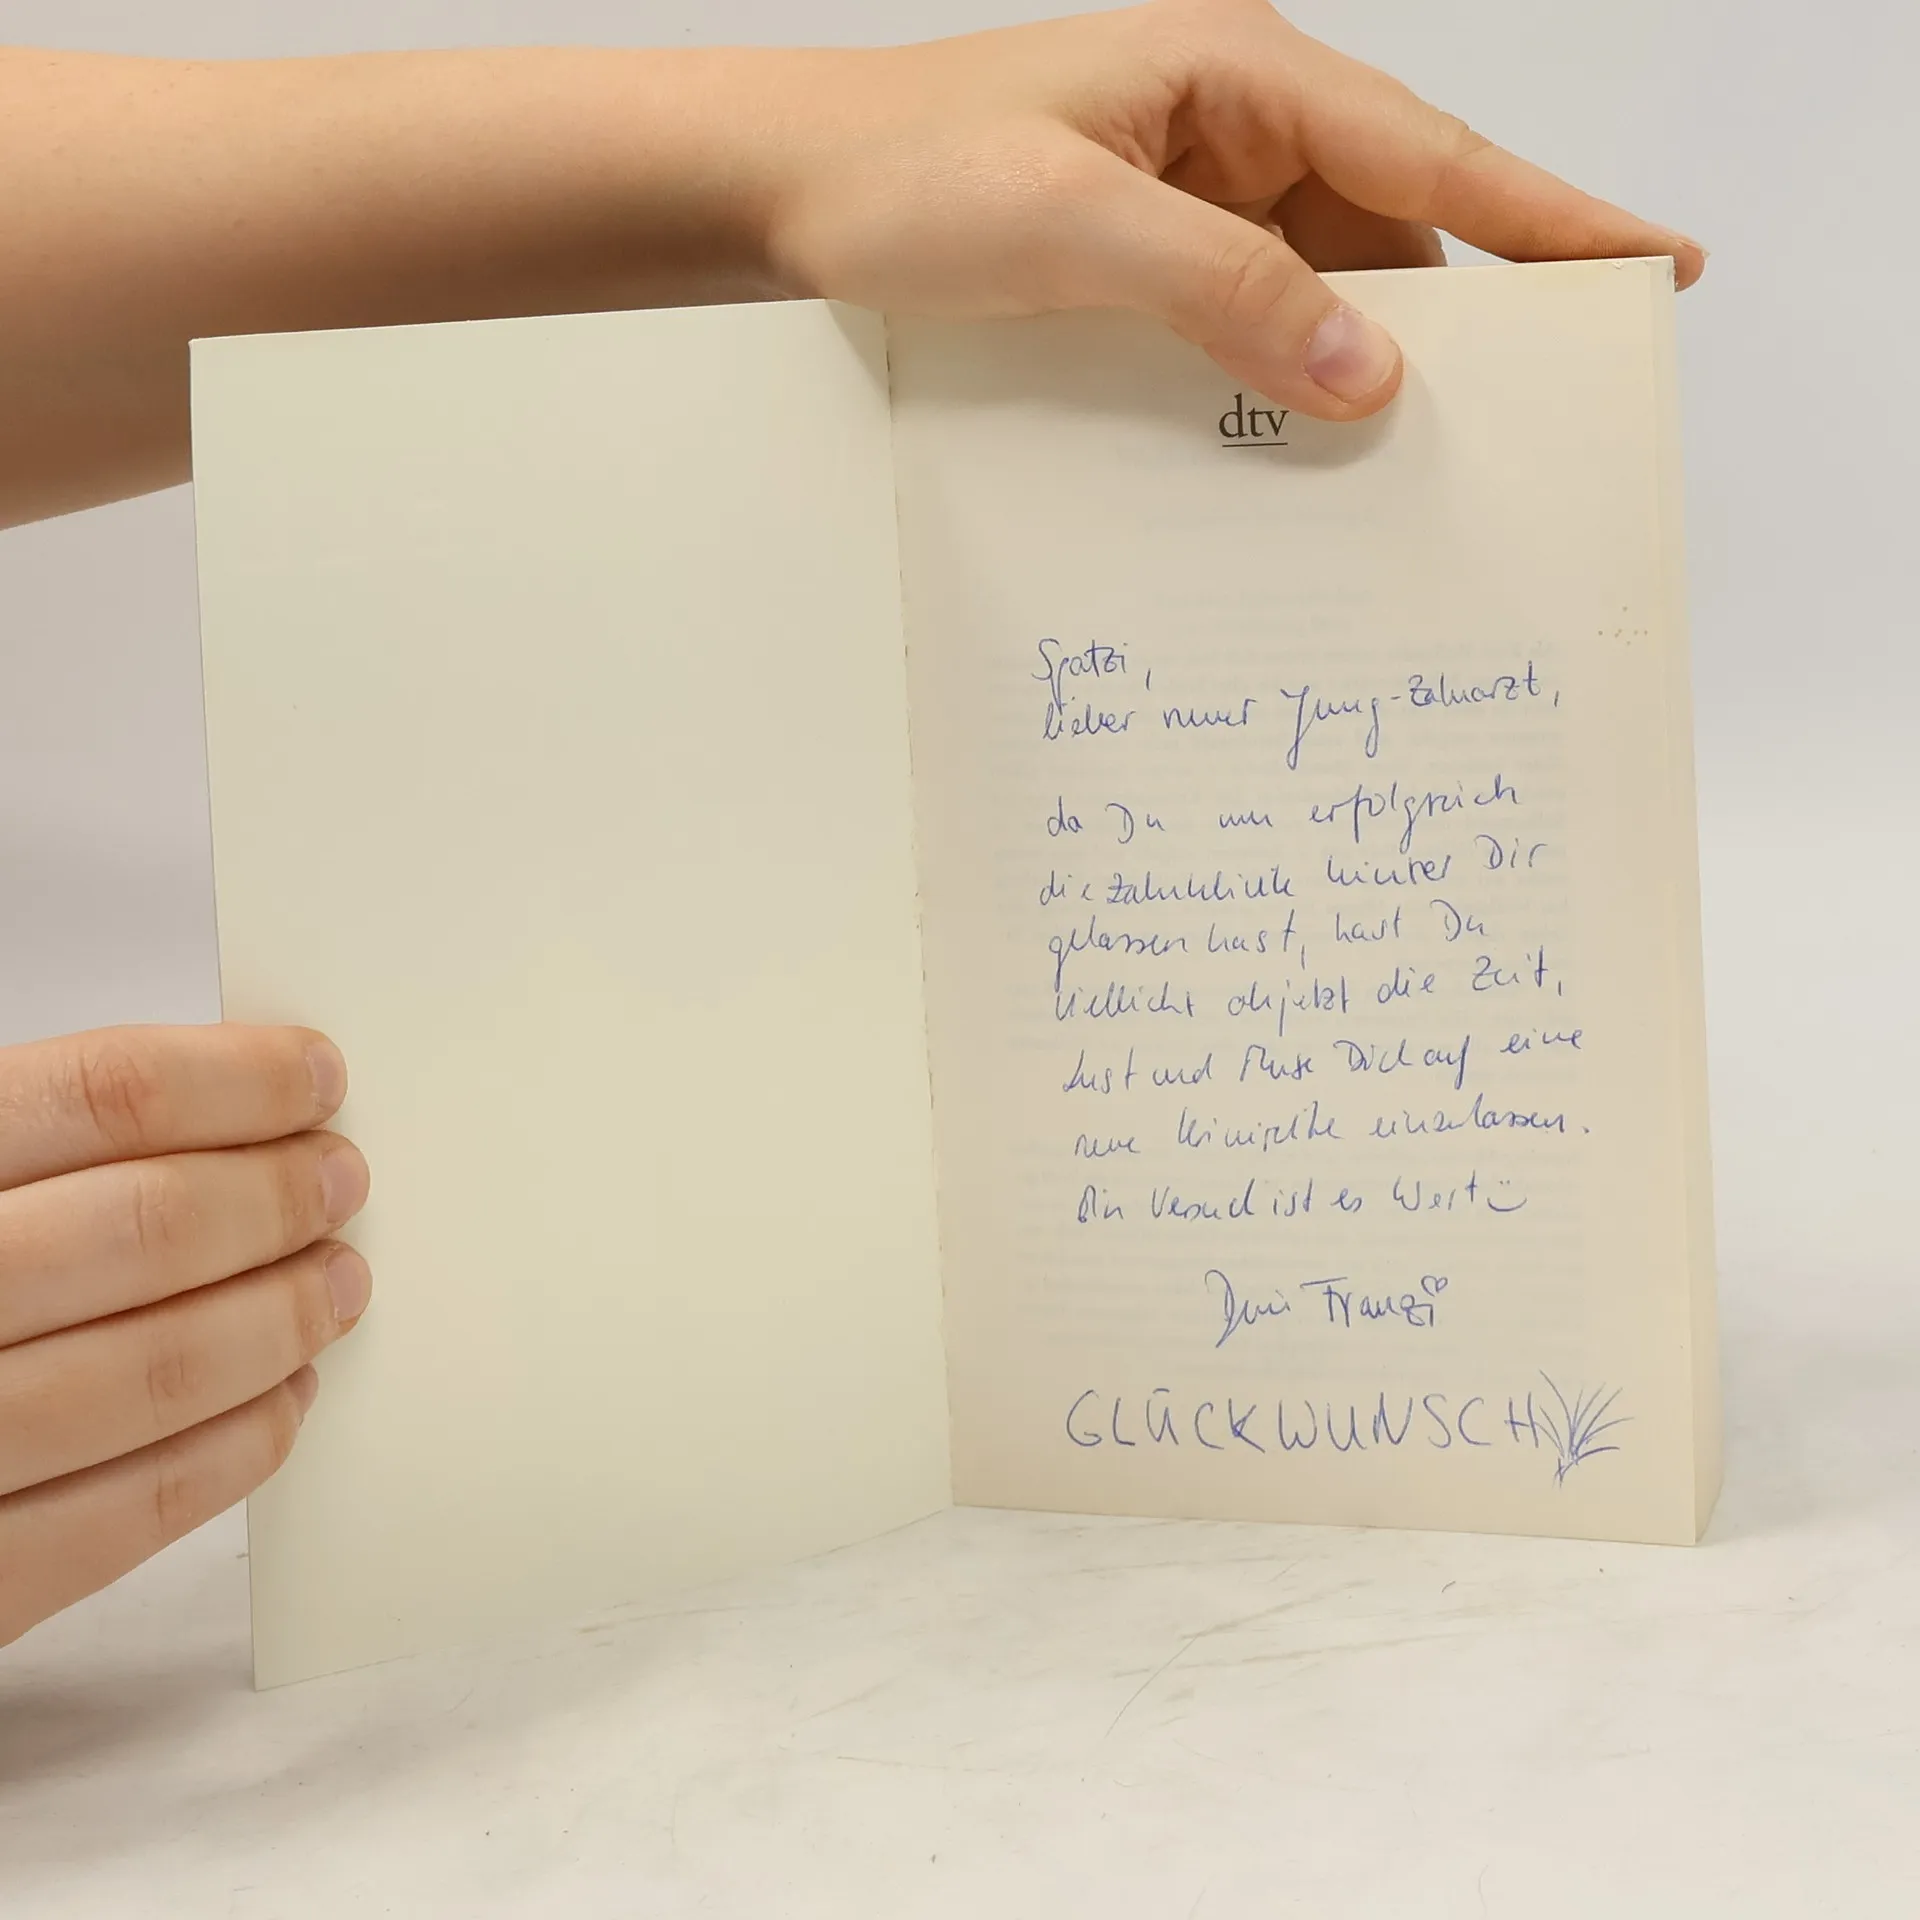 dtv
Spatzi,
lieber neuer Jung-Zahnarzt,
da Du nun erfolgreich
die Zahnklinik hinter Dir
gelassen hast, hast Du
vielleicht ab jetzt die Zeit,
Lust und Muse Dich auf eine
neue einzulassen.
Ein Versuch ist es Wert
Dein Franzi
GLÜCKWUNSCH